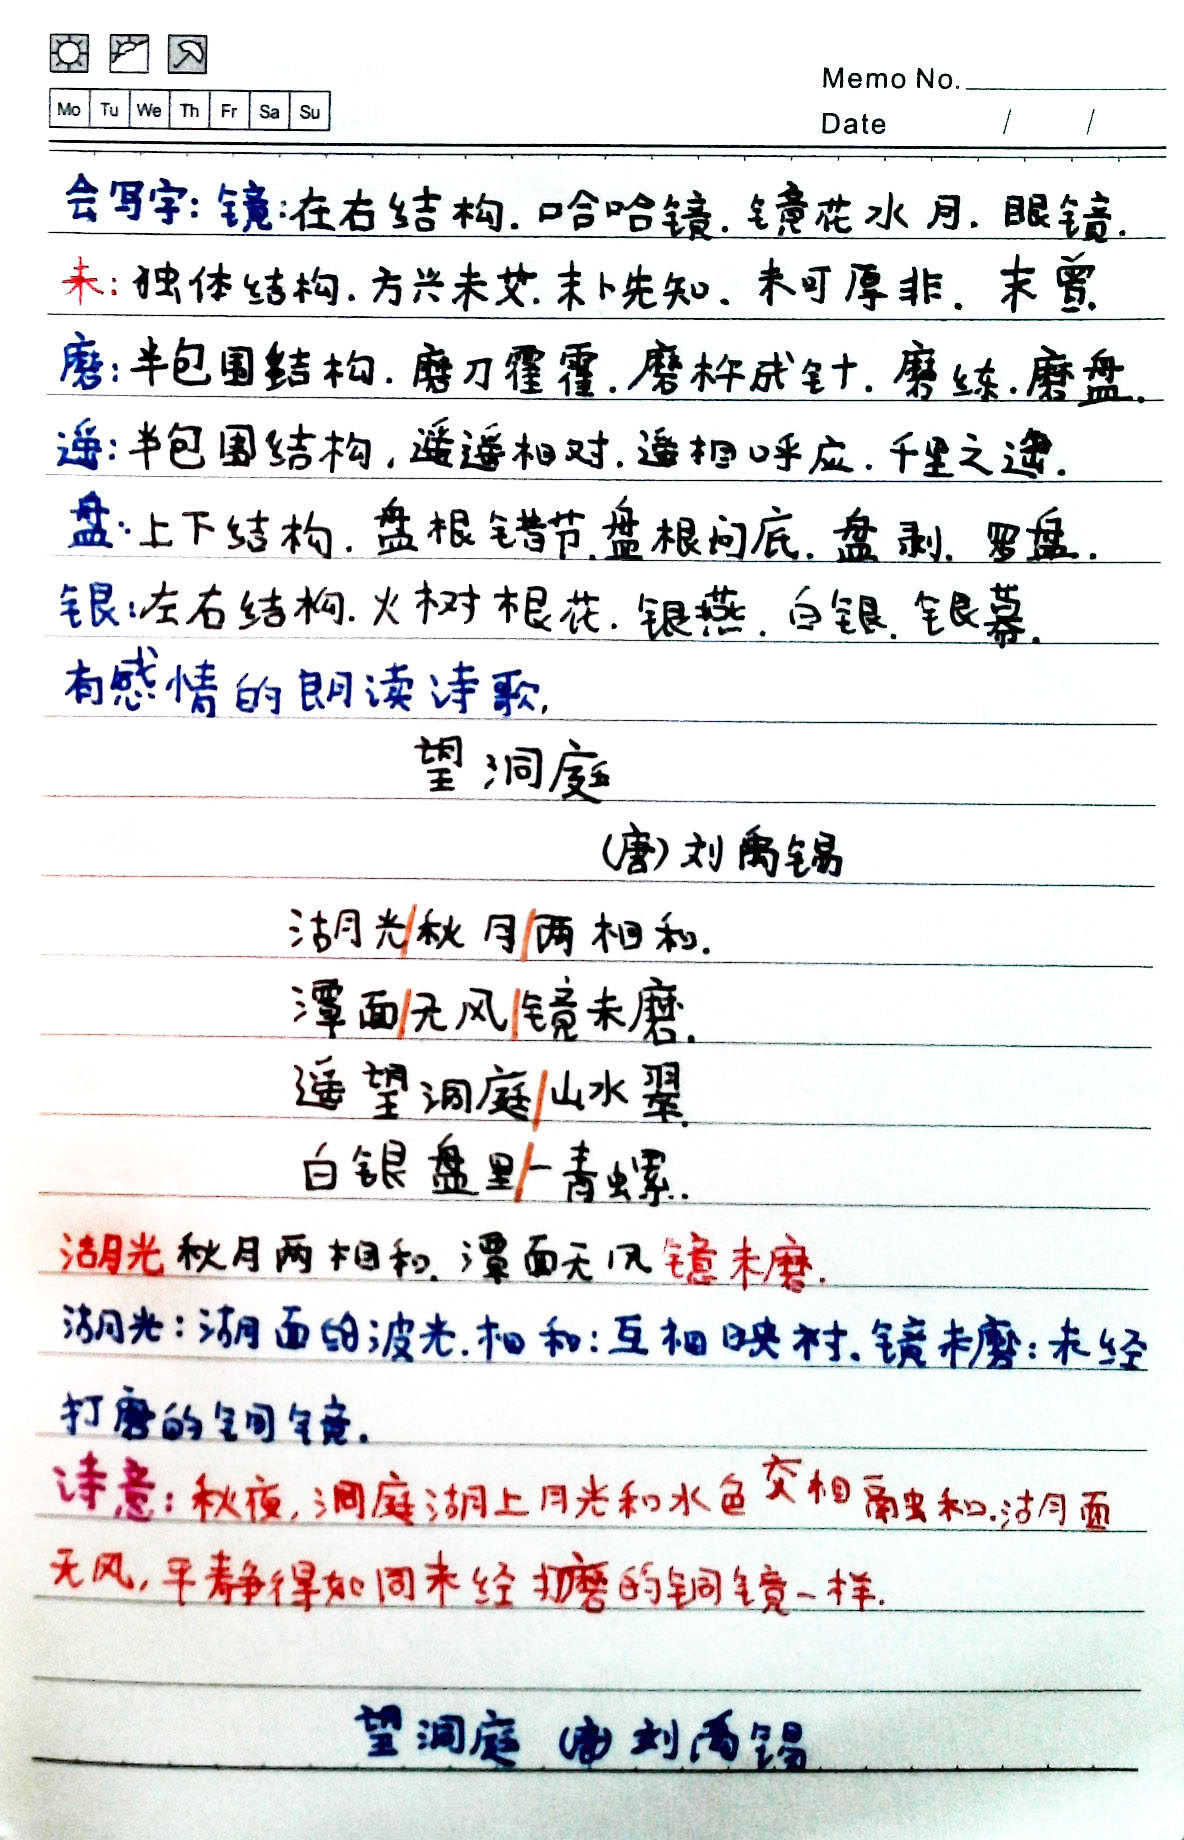 Memo No.
Mo Tu We Th Fr Sa Su
Date / /
会写字:镜:在右结构.哈哈镜.镜花水月.眼镜.
未:独体结构.方兴未艾.未卜先知.未可厚非.末曾.
磨:半包围结构.磨刀霍霍.磨杵成针.磨练.磨盘.
遥:半包围结构,遥遥相对.遥相呼应.千里之遥.
盘:上下结构.盘根错节.盘根问底.盘剥.罗盘.
银:左右结构.火树根花.银燕.白银.银幕.
有感情的朗读诗歌,
望洞庭
(唐)刘禹锡
湖光/秋月/两相和.
潭面/无风/镜未磨.
遥望洞庭/山水翠.
白银盘里/一青螺.
湖光秋月两相和.潭面无风镜未磨.
湖光:湖面的波光.相和:互相映衬.镜未磨:未经
打磨的铜镜.
诗意:秋夜,洞庭湖上月光和水色交相融和.湖面
无风,平静得如同未经打磨的铜镜一样.
望洞庭 (唐)刘禹锡